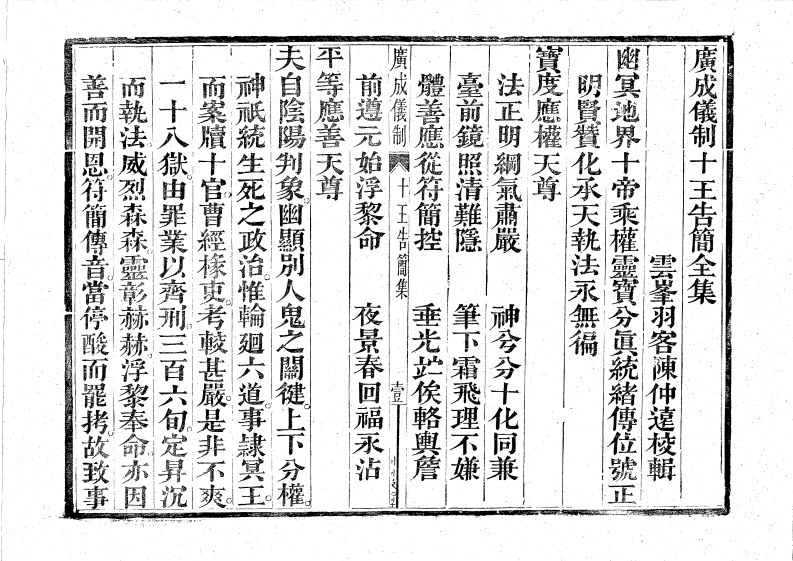 廣成儀制十王告簡全集
雲峯羽客陳仲遠校輯
幽冥地界十帝乘權靈寶分眞統緒傳位號正
明賢贊化承天執法永無徧
寶度應權天尊
法正明綱氣肅嚴　神兮分十化同兼
臺前鏡照清難隱　筆下霜飛理不嫌
體善應從符簡控　垂光竚俟輅輿詹
廣成儀制　十王告簡集　壹
前遵元始浮黎命　夜景春回福永沾
平等應善天尊
夫自陰陽判象幽顯別人鬼之關鍵上下分權
神祇統生死之政治惟輪廻六道事隸冥王
而案牘十官曹經椽吏考較甚嚴是非不爽
一十八獄由罪業以齊刑三百六旬定昇沉
而執法威烈森森靈彰赫赫浮黎奉命亦因
善而開恩符簡傳音當停酸而罷拷故致事